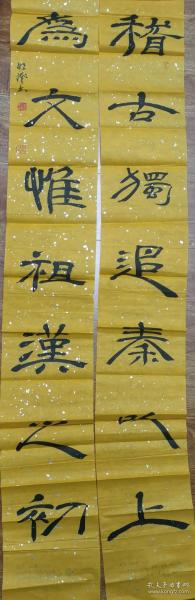 稽古獨追秦以上
爲文惟祖漢之初